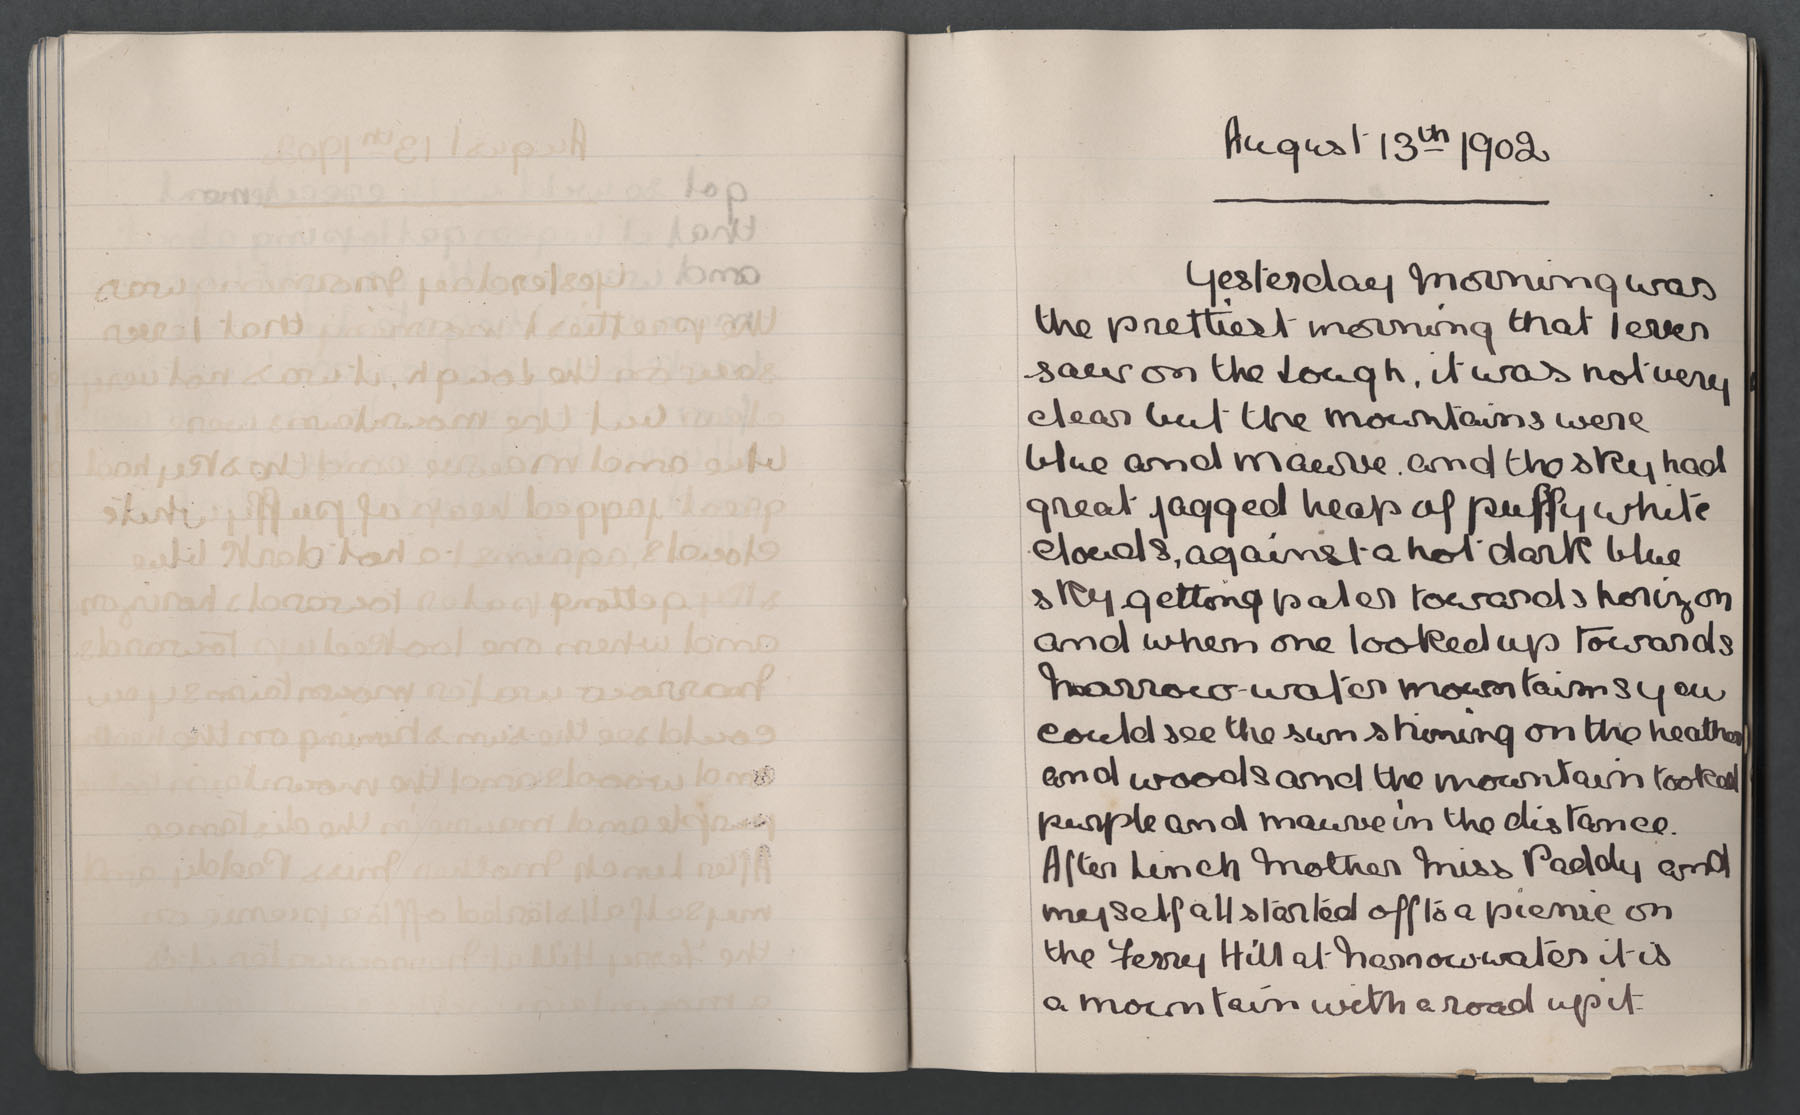 August 13th 1902
Yesterday Morning was
the prettiest morning that I ever
saw on the Lough, it was not very
clear but the mountains were
blue and mauve. and the sky had
great jagged heaps of puffy white
clouds, against a hot dark blue
sky getting paler towards horizon
and when one looked up towards
Narrow-water mountains you
could see the sun shining on the heather
and woods and the mountain looked
purple and mauve in the distance.
After Lunch Mother Miss Paddy and
myself all started off to a picnic on
the Ferry Hill at Narrow-water it is
a mountain with a road up it